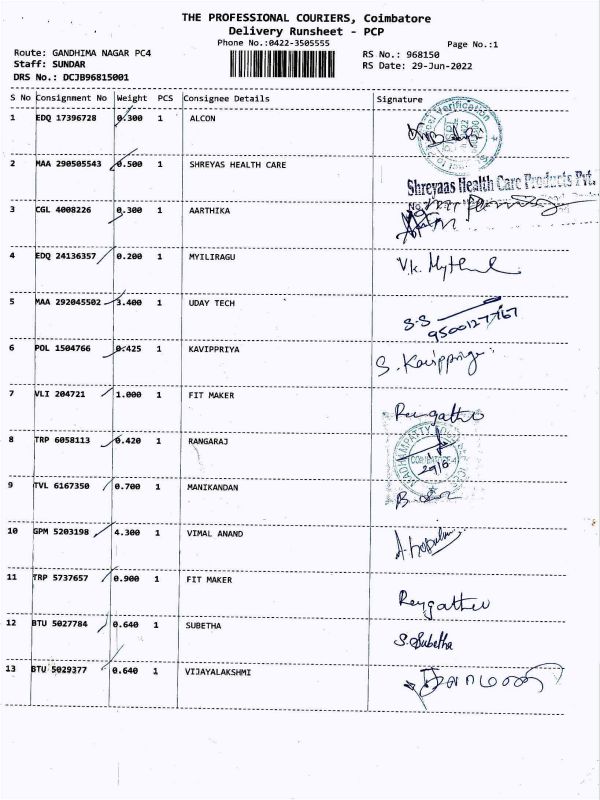 THE PROFESSIONAL COURIERS, Coimbatore
Delivery Runsheet - PCP
Phone No.:0422-3505555
Page No.:1
Route: GANDHIMA NAGAR PC4
RS No.: 968150
Staff: SUNDAR
RS Date: 29-Jun-2022
DRS No.: DCJB96815001
S No Consignment No Weight PCS Consignee Details Signature
1 EDQ 17396728 0.300 1 ALCON
2 MAA 290505543 0.500 1 SHREYAS HEALTH CARE
Shreyaas Health Care Products Pvt.
3 CGL 4008226 0.300 1 AARTHIKA
4 EDQ 24136357 0.200 1 MYILIRAGU
5 MAA 292045502 3.400 1 UDAY TECH S-S
9500127767
6 POL 1504766 0.425 1 KAVIPPRIYA S. Kavippriya
7 VLI 204721 1.000 1 FIT MAKER
8 TRP 6058113 0.420 1 RANGARAJ
9 TVL 6167350 0.700 1 MANIKANDAN
10 GPM 5203198 4.300 1 VIMAL ANAND
11 TRP 5737657 0.900 1 FIT MAKER
12 BTU 5027784 0.640 1 SUBETHA S. Subetha
13 BTU 5029377 0.640 1 VIJAYALAKSHMI